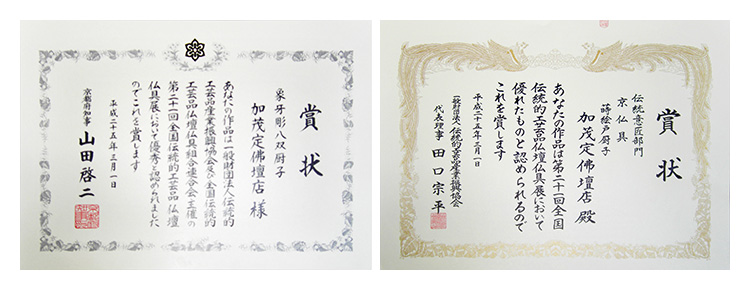 賞状
象牙彫八双厨子
加茂定佛壇店 様
あなたの作品は一般財団法人伝統的
工芸品産業振興協会及び全国伝統的
工芸品仏壇仏具組合連合会主催の
第二十一回全国伝統的工芸品仏壇
仏具展において優秀と認められました
のでこれを賞します
平成二十五年三月一日
京都府知事 山田啓二
賞状
伝統意匠部門
京仏具
蒔絵戸厨子
加茂定佛壇店 殿
あなたの作品は第二十一回全国
伝統的工芸品仏壇仏具展において
優れたものと認められるので
これを賞します
平成二十五年三月一日
一般財団法人 伝統的工芸品産業振興協会
代表理事 田口宗平